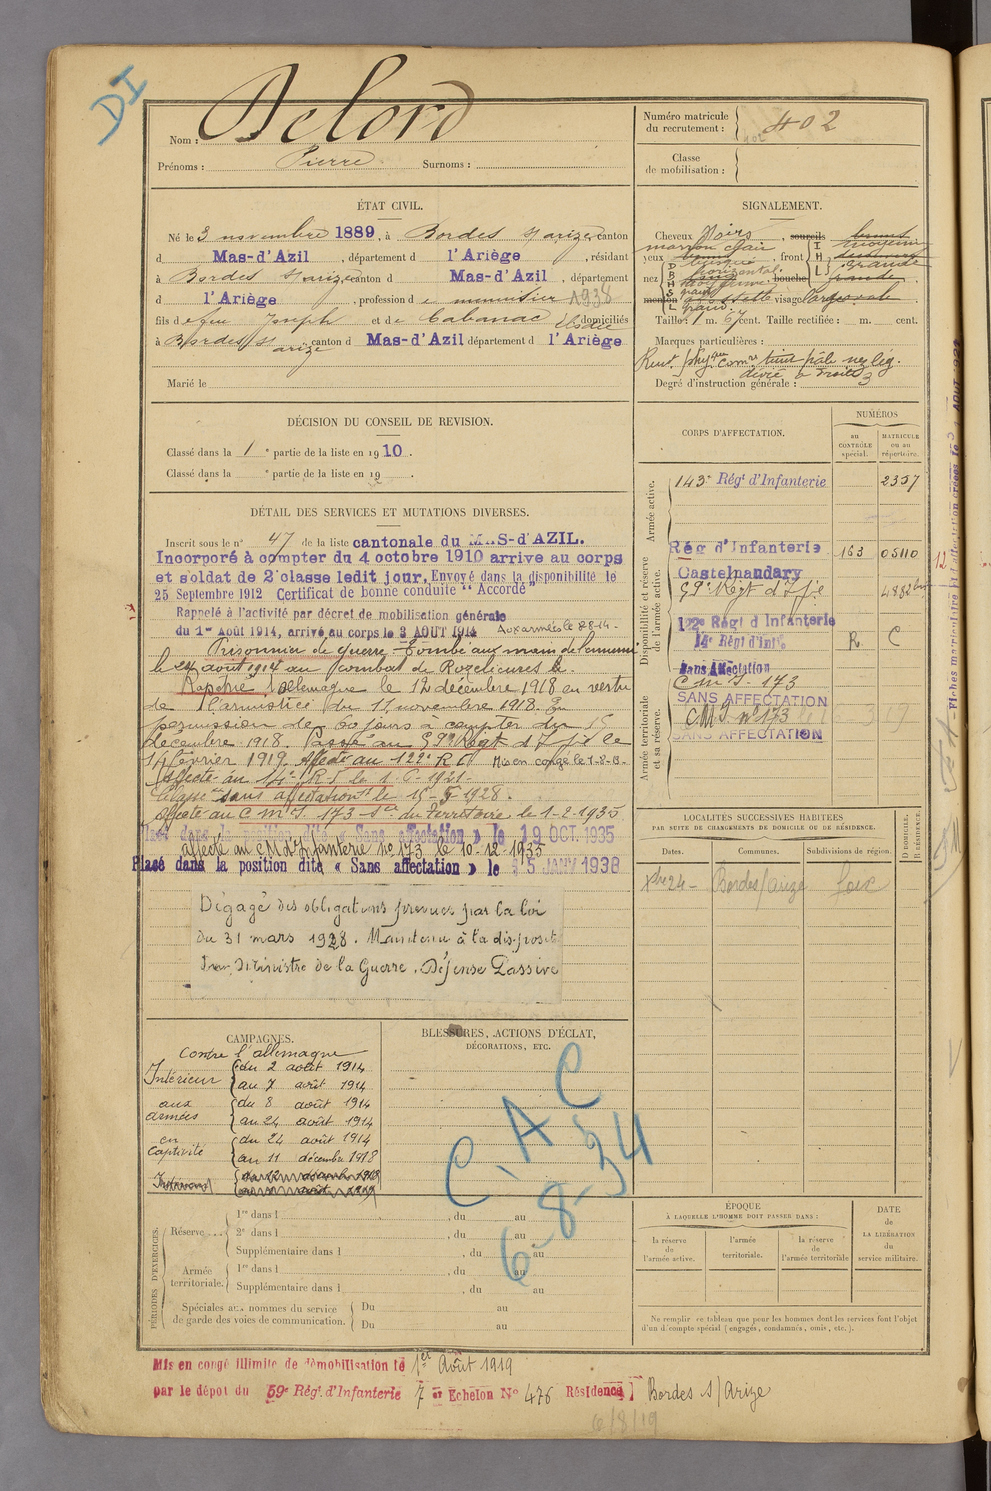 DI
Nom : Delord
Prénoms : Pierre Surnoms :
Numéro matricule du recrutement : 402
Classe de mobilisation :
ÉTAT CIVIL.
Né le 3 novembre 1889, à Bordes s/ arize, canton
d Mas-d'Azil, département d l'Ariège, résidant
à Bordes s/ arize, canton d Mas-d'Azil, département
d l'Ariège, profession de menuisier A938
fils de feu Joseph et de Cabanac Elodie domiciliés
à Bordes s/ arize canton d Mas-d'Azil département d l'Ariège
Marié le
SIGNALEMENT.
Cheveux Noirs, sourcils bruns
marron clair
yeux, front moyenne
nez, bouche grande
menton visage
Taille : 1 m. 67 cent. Taille rectifiée : m. cent.
Marques particulières :
Rens. phyques comre teint pâle nez lég.
dévié à droite
Degré d'instruction générale : 3
DÉCISION DU CONSEIL DE REVISION.
Classé dans la 1e partie de la liste en 1910.
Classé dans la e partie de la liste en 19 .
DÉTAIL DES SERVICES ET MUTATIONS DIVERSES.
Inscrit sous le n° 47 de la liste cantonale du MAS-d'AZIL.
Incorporé à compter du 4 octobre 1910 arrive au corps
et soldat de 2e classe ledit jour. Envoyé dans la disponibilité le
25 Septembre 1912 Certificat de bonne conduite "Accordé"
Rappelé à l'activité par décret de mobilisation générale
du 1er Août 1914, arrivé au corps le 3 AOUT 1914 Aux armées le 8-8-14-
Prisonnier de guerre - Tombé aux mains de l'ennemi
le 24 août 1914 au combat de Rozelieures
Rapatrié d'allemagne le 12 décembre 1918 en vertu
de l'armistice du 11 novembre 1918. En
permission de 60 jours à compter du 15
décembre 1918. Passé au 59e Régt d'Ifie le
14 février 1919. Affecté au 122e R I Mis en congé le 1-8-19-
Affecté au 14e R.I. le 1-6-1921-
Classé sans affectation le 15-5-1928.
Affecté au C M I 173 - du Territoire le 1-2-1935
Placé dans la position dite « Sans affectation » le 19 OCT. 1935
affecté au C M d'Infanterie no 173 le 10-12-1935
Placé dans la position dite « Sans affectation » le 15 JANV 1938
Dégagé des obligations prévues par la loi
du 31 mars 1928. Maintenu à la disposit.
du Ministre de la Guerre. Défense Passive
CORPS D'AFFECTATION.
NUMÉROS
au CONTRÔLE spécial.
MATRICULE ou au répertoire.
Armée active.
143e Régt d'Infanterie 2337
Disponibilité et réserve de l'armée active.
Rég d'Infanterie 163 05110
Castelnaudary
59e Régt d'Ifie 4882 bis
122e Régt d'Infanterie
14e Régt d'Infie R. C
Armée territoriale et sa réserve.
Sans Affectation
C M I - 173
SANS AFFECTATION
C M I no 173
SANS AFFECTATION
LOCALITÉS SUCCESSIVES HABITÉES
PAR SUITE DE CHANGEMENTS DE DOMICILE OU DE RÉSIDENCE.
Dates. Communes. Subdivisions de région. D DOMICILE. R RÉSIDENCE.
Xbre 24 - Bordes/Arize foix
CAMPAGNES.
Contre l'allemagne
Intérieur du 2 août 1914
au 7 août 1914
aux armées du 8 août 1914
au 24 août 1914
en captivité du 24 août 1914
au 11 décembre 1918
Intérieur du 12 décembre 1918
au août 1919
BLESSURES, ACTIONS D'ÉCLAT,
DÉCORATIONS, ETC.
C.A.C
6-8-34
PÉRIODES D'EXERCICES.
Réserve
1re dans l , du au
2e dans l , du au
Supplémentaire dans l , du au
Armée territoriale.
1re dans l , du au
Supplémentaire dans l , du au
Spéciales aux hommes du service de garde des voies de communication.
Du au
Du au
ÉPOQUE
À LAQUELLE L'HOMME DOIT PASSER DANS :
la réserve de l'armée active.
l'armée territoriale.
la réserve de l'armée territoriale
DATE de LA LIBÉRATION du service militaire.
Ne remplir ce tableau que pour les hommes dont les services font l'objet
d'un décompte spécial (engagés, condamnés, omis, etc.).
Mis en congé illimité de démobilisation le 1er Août 1919
par le dépôt du 59e Régt. d'Infanterie 7 er Echelon No 476 Résidence Bordes s/Arize
6/8/19